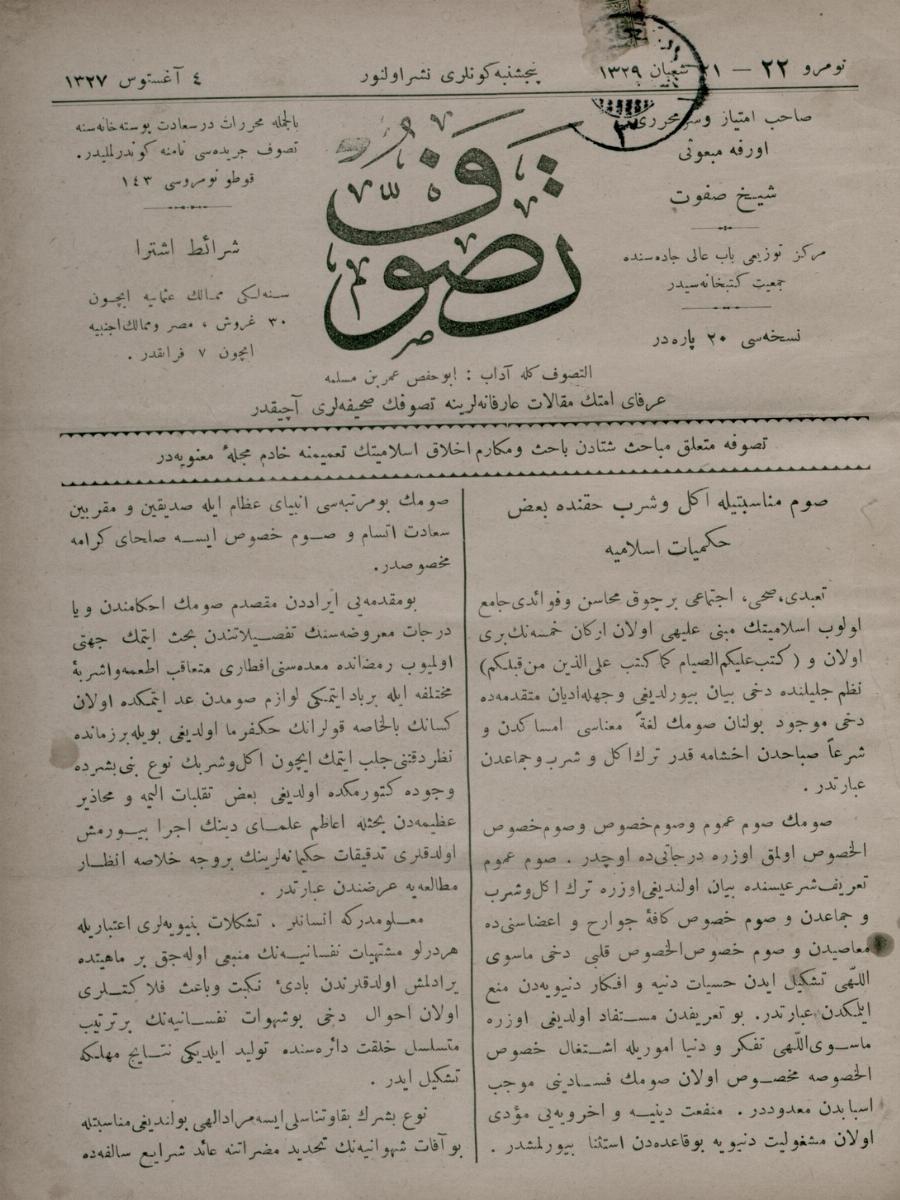 نومرو ٢٢ — ٢١ شعبان ١٣٢٩
پنجشنبه كونلری نشر اولنور
٤ آغستوس ١٣٢٧
صاحب امتياز وسر محرری
اورفه مبعوثی
شيخ صفوت
مركز توزيعی باب عالی جاده سنده
جمعيت كتبخانه سيدر
نسخه سی ٢٠ پاره در
تصوف
بالجمله محررات درسعادت پوسته خانه سنه
تصوف جريده سی نامنه كوندرلمليدر.
قوطو نومروسی ١٤٣
شرائط اشترا
سنه لكی ممالك عثمانيه ايچون
٣٠ غروش ، مصر وممالك اجنبيه
ايچون ٧ فرانقدر .
التصوف كله آداب : ابو حفص عمر بن مسلمه
عرفای امتك مقالات عارفانه لرينه تصوفك صحيفه لری آچيقدر
تصوفه متعلق مباحث شتادن باحث ومكارم اخلاق اسلاميتك تعميمنه خادم مجلهٔ معنويه در
صوم مناسبتيله اكل وشرب حقنده بعض
حكميات اسلاميه
تعبدی، صحی، اجتماعی برچوق محاسن وفوائدی جامع
اولوب اسلاميتك مبنی عليهی اولان اركان خمسه نك بری
اولان و (كتب عليكم الصيام كما كتب علی الذين من قبلكم)
نظم جليلنده دخی بيان بيورلديغی وجهله اديان متقدمه ده
دخی موجود بولنان صومك لغةً معناسی امساكدن و
شرعاً صباحدن اخشامه قدر ترك اكل و شرب وجماعدن
عبارتدر .
صومك صوم عموم وصوم خصوص وصوم خصوص
الخصوص اولمق اوزره درجاتی ده اوچدر . صوم عموم
تعريف شرعيسنده بيان اولنديغی اوزره ترك اكل وشرب
و جماعدن و صوم خصوص كافهٔ جوارح و اعضاسنی ده
معاصيدن و صوم خصوص الخصوص قلبی دخی ماسوی
اللّهی تشكيل ايدن حسيات دنيه و افكار دنيويه دن منع
ايلمكدن عبارتدر. بو تعريفدن مستفاد اولديغی اوزره
ماسوی اللّهی تفكر و دنيا اموريله اشتغال خصوص
الخصوصه مخصوص اولان صومك فسادينی موجب
اسبابدن معدوددر . منفعت دينيه و اخرويه يی مؤدی
اولان مشغوليت دنيويه بوقاعده دن استثنا بيورلمشدر .
صومك بو مرتبه سی انبيای عظام ايله صديقين و مقربين
سعادت اتسام و صوم خصوص ايسه صلحای كرامه
مخصوصدر.
بومقدمه يی ايراددن مقصدم صومك احكامندن ويا
درجات معروضه سنك تفصيلاتندن بحث ايتمك جهتی
اولميوب رمضانده معده سنی افطاری متعاقب اطعمه واشربهٔ
مختلفه ايله برباد ايتمكی لوازم صومدن عد ايتمكده اولان
كسانك بالخاصه قولرانك حكمفرما اولديغی بويله برزمانده
نظر دقتنی جلب ايتمك ايچون اكل وشربك نوع بنی بشرده
وجوده كتورمكده اولديغی بعض تقلبات اليمه و محاذير
عظيمه دن بحثله اعاظم علمای دينك اجرا بيورمش
اولدقلری تدقيقات حكيمانه لرينك بروجه خلاصه انظار
مطالعه يه عرضندن عبارتدر .
معلومدركه انسانلر . تشكلات بنيويه لری اعتباريله
هردرلو مشتهيات نفسانيه نك منبعی اوله جق بر ماهيتده
يرادلمش اولدقلرندن بادیٔ نكبت وباعث فلاكتلری
اولان احوال دخی بو شهوات نفسانيه نك برترتيب
متسلسل خلقت دائره سنده توليد ايلديكی نتايج مهلكه
تشكيل ايدر .
نوع بشرك بقا وتناسلی ايسه مراد الهی بولنديغی مناسبتله
بو آفات شهوانيه نك تحديد مضراتنه عائد شرايع سالفه ده